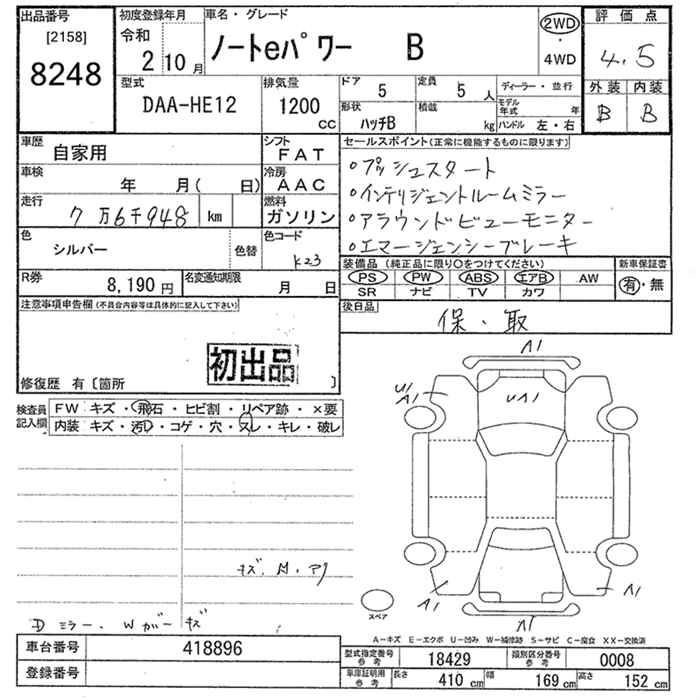 出品番号
[2158]
8248
初度登録年月
令和
2 10月
車名・グレード
ノートeパワー B
2WD
・
4WD
評価点
4.5
型式
DAA-HE12
排気量
1200
CC
ドア
5
定員
5 人
ディーラー・並行
形状
ハッチB
積載
kg
モデル年式 年
ハンドル 左・右
外装 内装
B B
車歴
自家用
シフト
FAT
車検
年 月( 日)
冷房
AAC
走行
7万6千948 km
燃料
ガソリン
色
シルバー
色替
色コード
K23
R券
8,190円
名変通知期限
月 日
セールスポイント(正常に機能するものに限ります)
○プッシュスタート
○インテリジェントルームミラー
○アラウンドビューモニター
○エマージェンシーブレーキ
装備品 (純正品に限り○をつけてください)
新車保証書
PS PW ABS エアB AW
SR ナビ TV カワ
有・無
後日品
保・取
注意事項申告欄(不具合内容等は具体的に記入して下さい)
初出品
修復歴 有〔箇所 〕
検査員
記入欄
FW キズ・飛石・ヒビ割・リペア跡・×要
内装 キズ・汚レ・コゲ・穴・スレ・キレ・破レ
A1
U1
A1
UA1
A1
A1
A1
スペア
Dミラー. Wガー キズ
A-キズ E-エクボ U-凹み W-補修跡 S-サビ C-腐食 XX-交換済
車台番号
418896
登録番号
型式指定番号
参考
18429
類別区分番号
参考
0008
車庫証明用
参考
長さ 410 cm 幅 169 cm 高さ 152 cm